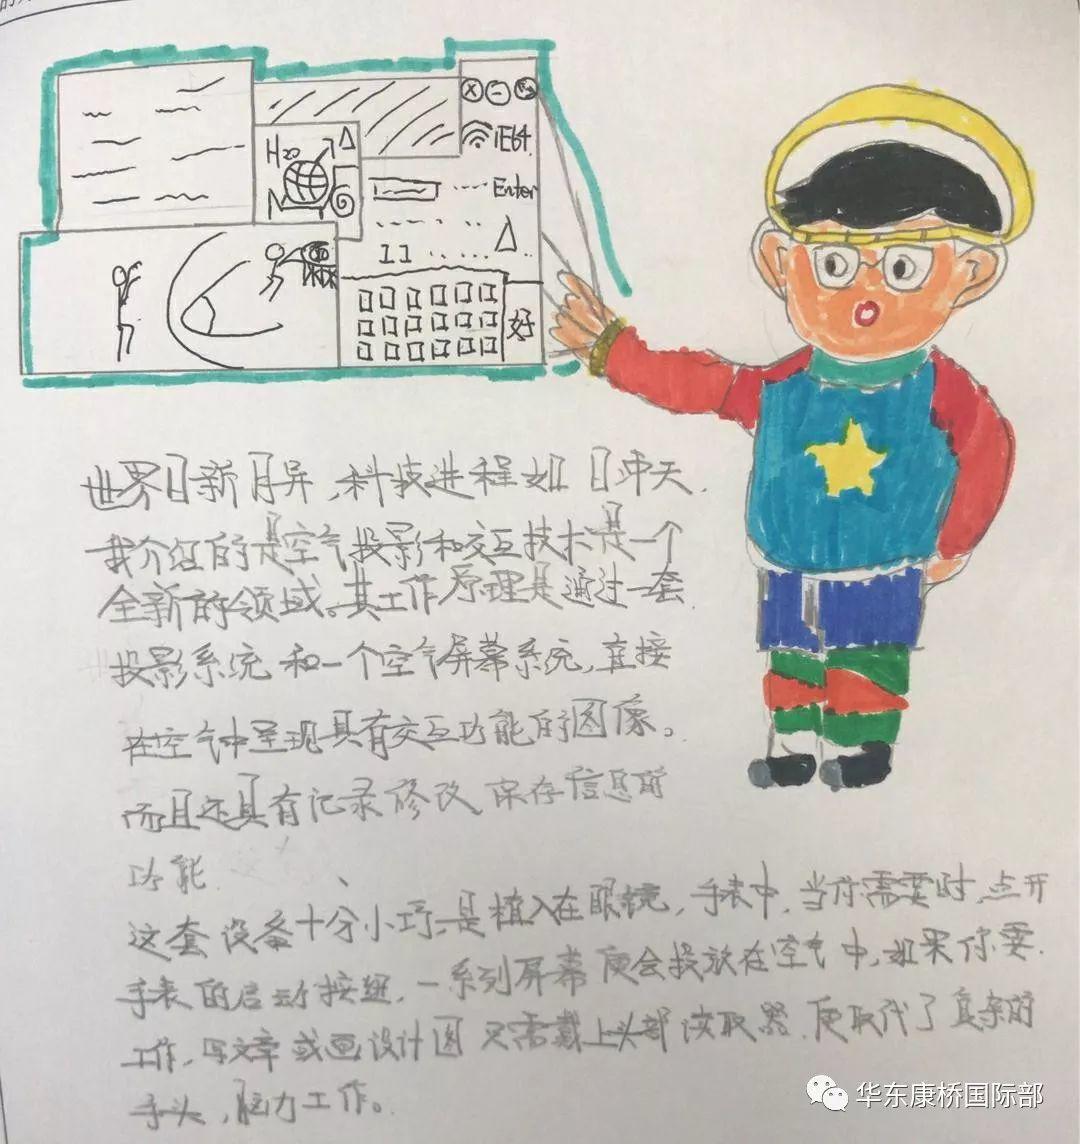 H₂O
N
G
X
E64
Enter
好
世界日新月异，科技进程如日冲天，
我介绍的是空气投影和交互技术是一个
全新的领域。其工作原理是通过一套
投影系统和一个空气屏幕系统，直接
在空气中呈现具有交互功能的图像。
而且还具有记录修改、保存信息的
功能．
这套设备十分小巧，是植入在眼镜，手表中，当你需要时，点开
手表的启动按纽，一系列屏幕便会投放在空气中，如果你要
工作，写文章或画设计图只需戴上头部读取器，便取代了复杂的
手头，脑力工作。
华东康桥国际部